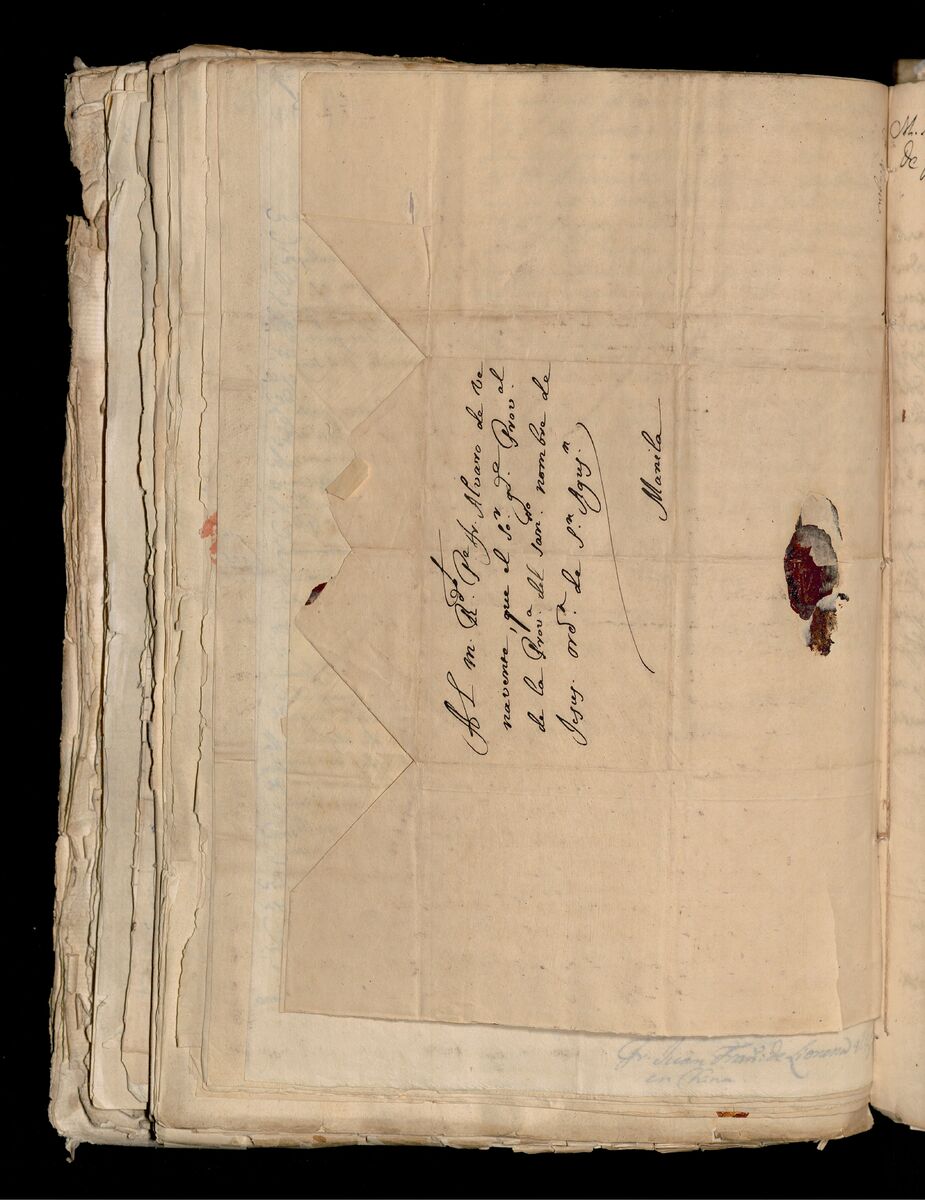 Al m. Rdo. Pe. fr. Alvaro de Ve
navente, que el Sor. gde. Prov. al
de la Prova. del santo. nombre de
Jesus. ordn. de Sn. Agusn.
Manila
fr. Juan Franco. de
en China
M.
de